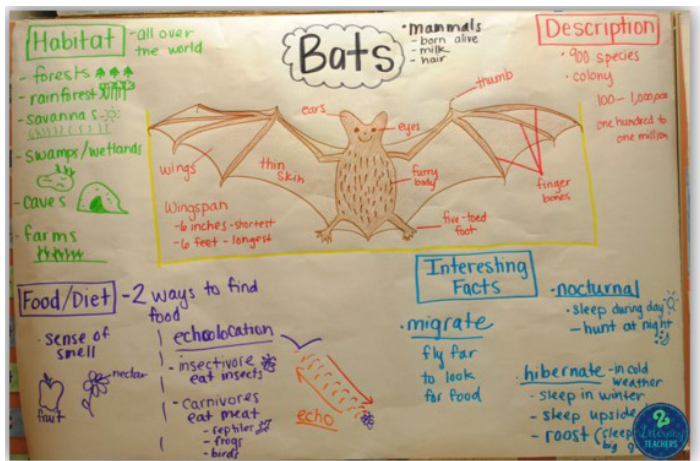 Habitat
-all over
the world
- forests
- rainforest
- savannas
- swamps/wetlands
- caves
- farms
Bats
• mammals
- born alive
- milk
- hair
Description
• 900 species
• colony
100 - 1,000,000
one hundred to
one million
ears
eyes
thumb
wings
thin
skin
furry
body
finger
bones
five-toed
foot
Wingspan
- 6 inches - shortest
- 6 feet - longest
Food/Diet
- 2 ways to find
food
• sense of
smell
fruit
nectar
echolocation
- insectivore
eat insects
- carnivores
eat meat
- reptiles
- frogs
- birds
echo
Interesting
Facts
• migrate
fly far
to look
for food
• nocturnal
- sleep during day
- hunt at night
• hibernate - in cold
weather
- sleep in winter
- sleep upside
- roost (sleep
big g
2
Literacy
TEACHERS